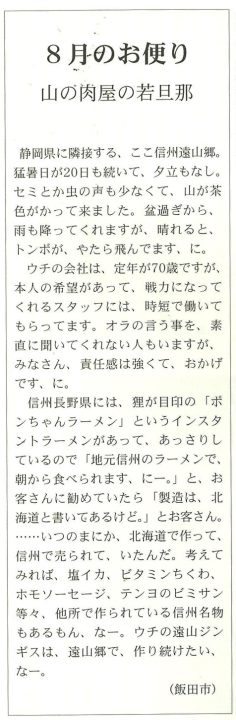 ８月のお便り
山の肉屋の若旦那
静岡県に隣接する、ここ信州遠山郷。
猛暑日が20日も続いて、夕立もなし。
セミとか虫の声も少なくて、山が茶
色がかって来ました。盆過ぎから、
雨も降ってくれますが、晴れると、
トンボが、やたら飛んでます、に。
ウチの会社は、定年が70歳ですが、
本人の希望があって、戦力になって
くれるスタッフには、時短で働いて
もらってます。オラの言う事を、素
直に聞いてくれない人もいますが、
みなさん、責任感は強くて、おかげ
です、に。
信州長野県には、狸が目印の「ポ
ンちゃんラーメン」というインスタ
ントラーメンがあって、あっさりし
ているので「地元信州のラーメンで、
朝から食べられます、にー。」と、お
客さんに勧めていたら「製造は、北
海道と書いてあるけど。」とお客さん。
……いつのまにか、北海道で作って、
信州で売られて、いたんだ。考えて
みれば、塩イカ、ビタミンちくわ、
ホモソーセージ、テンヨのビミサン
等々、他所で作られている信州名物
もあるもん、なー。ウチの遠山ジン
ギスは、遠山郷で、作り続けたい、
なー。
（飯田市）